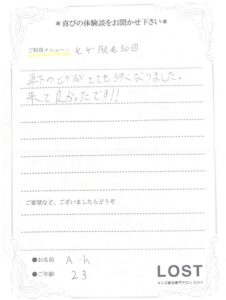 ＊喜びの体験談をお聞かせ下さい＊
ご利用メニュー：ヒゲ脱毛30回
鼻下のヒゲがとてもうすくなりました。
来て良かったです!!
ご要望など、ございましたらどうぞ
●お名前 A.h
●ご年齢 23
LOST
メンズ脱毛専門サロン ロスト